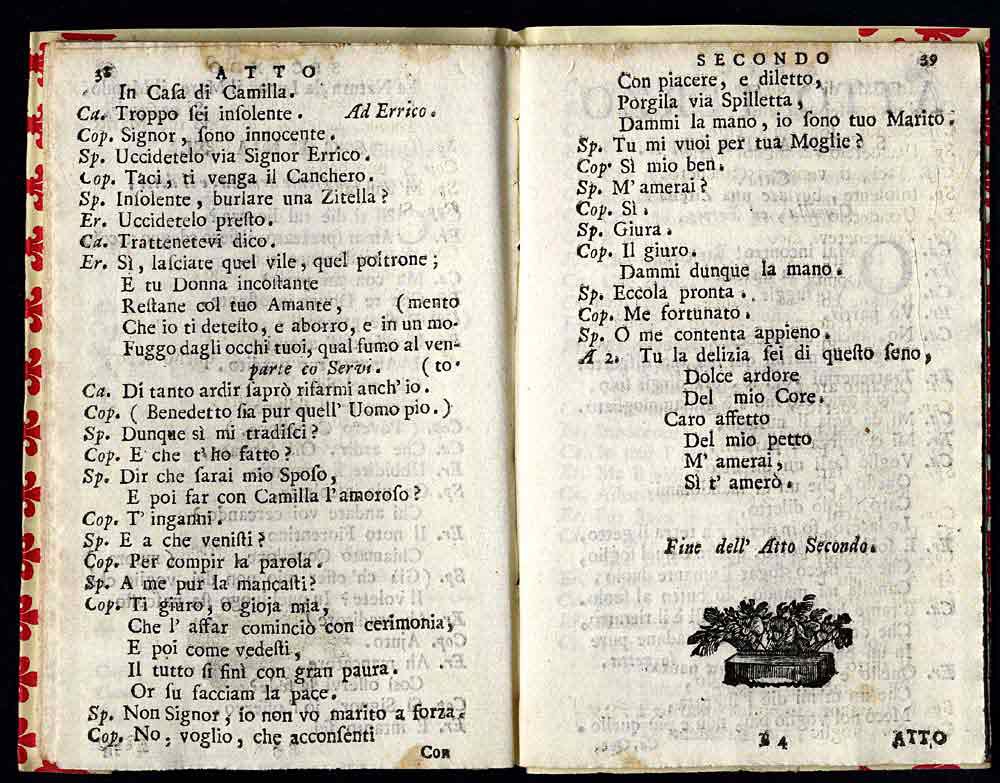 38 ATTO
In Casa di Camilla.
Ca. Troppo sei insolente. Ad Errico.
Cop. Signor, sono innocente.
Sp. Uccidetelo via Signor Errico.
Cop. Taci, ti venga il Canchero.
Sp. Insolente, burlare una Zitella?
Er. Uccidetelo presto.
Ca. Trattenetevi dico.
Er. Sì, lasciate quel vile, quel poltrone;
E tu Donna incostante
Restane col tuo Amante, (mento
Che io ti detesto, e aborro, e in un mo-
Fuggo dagli occhi tuoi, qual fumo al ven-
parte co Servi. (to.
Ca. Di tanto ardir saprò rifarmi anch' io.
Cop. (Benedetto sia pur quell' Uomo pio.)
Sp. Dunque sì mi tradisci?
Cop. E che t' ho fatto?
Sp. Dir che sarai mio Sposo,
E poi far con Camilla l'amoroso?
Cop. T' inganni.
Sp. E a che venisti?
Cop. Per compir la parola.
Sp. A me pur la mancasti?
Cop. Ti giuro, o gioja mia,
Che l' affar cominciò con cerimonia,
E poi come vedesti,
Il tutto si finì con gran paura.
Or su facciam la pace.
Sp. Non Signor, io non vo marito a forza.
Cop. No, voglio, che acconsenti
Con
SECONDO 39
Con piacere, e diletto,
Porgila via Spilletta,
Dammi la mano, io sono tuo Marito.
Sp. Tu mi vuoi per tua Moglie?
Cop. Sì mio ben.
Sp. M' amerai?
Cop. Sì.
Sp. Giura.
Cop. Il giuro.
Dammi dunque la mano.
Sp. Eccola pronta.
Cop. Me fortunato.
Sp. O me contenta appieno.
A 2. Tu la delizia sei di questo seno,
Dolce ardore
Del mio Core.
Caro affetto
Del mio petto
M' amerai,
Sì t' amerò.
Fine dell' Atto Secondo.
E 4 ATTO